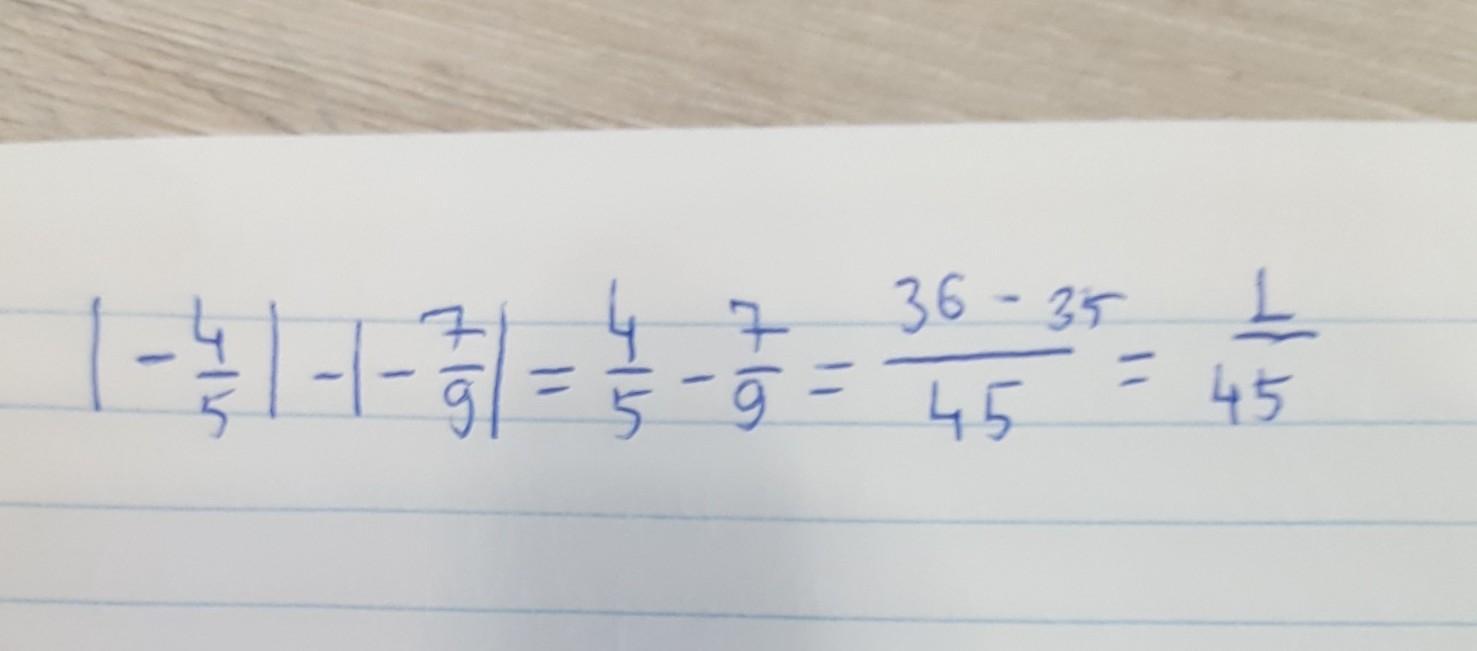 |-4/5| - |-7/9| = 4/5 - 7/9 = (36 - 35)/45 = 1/45